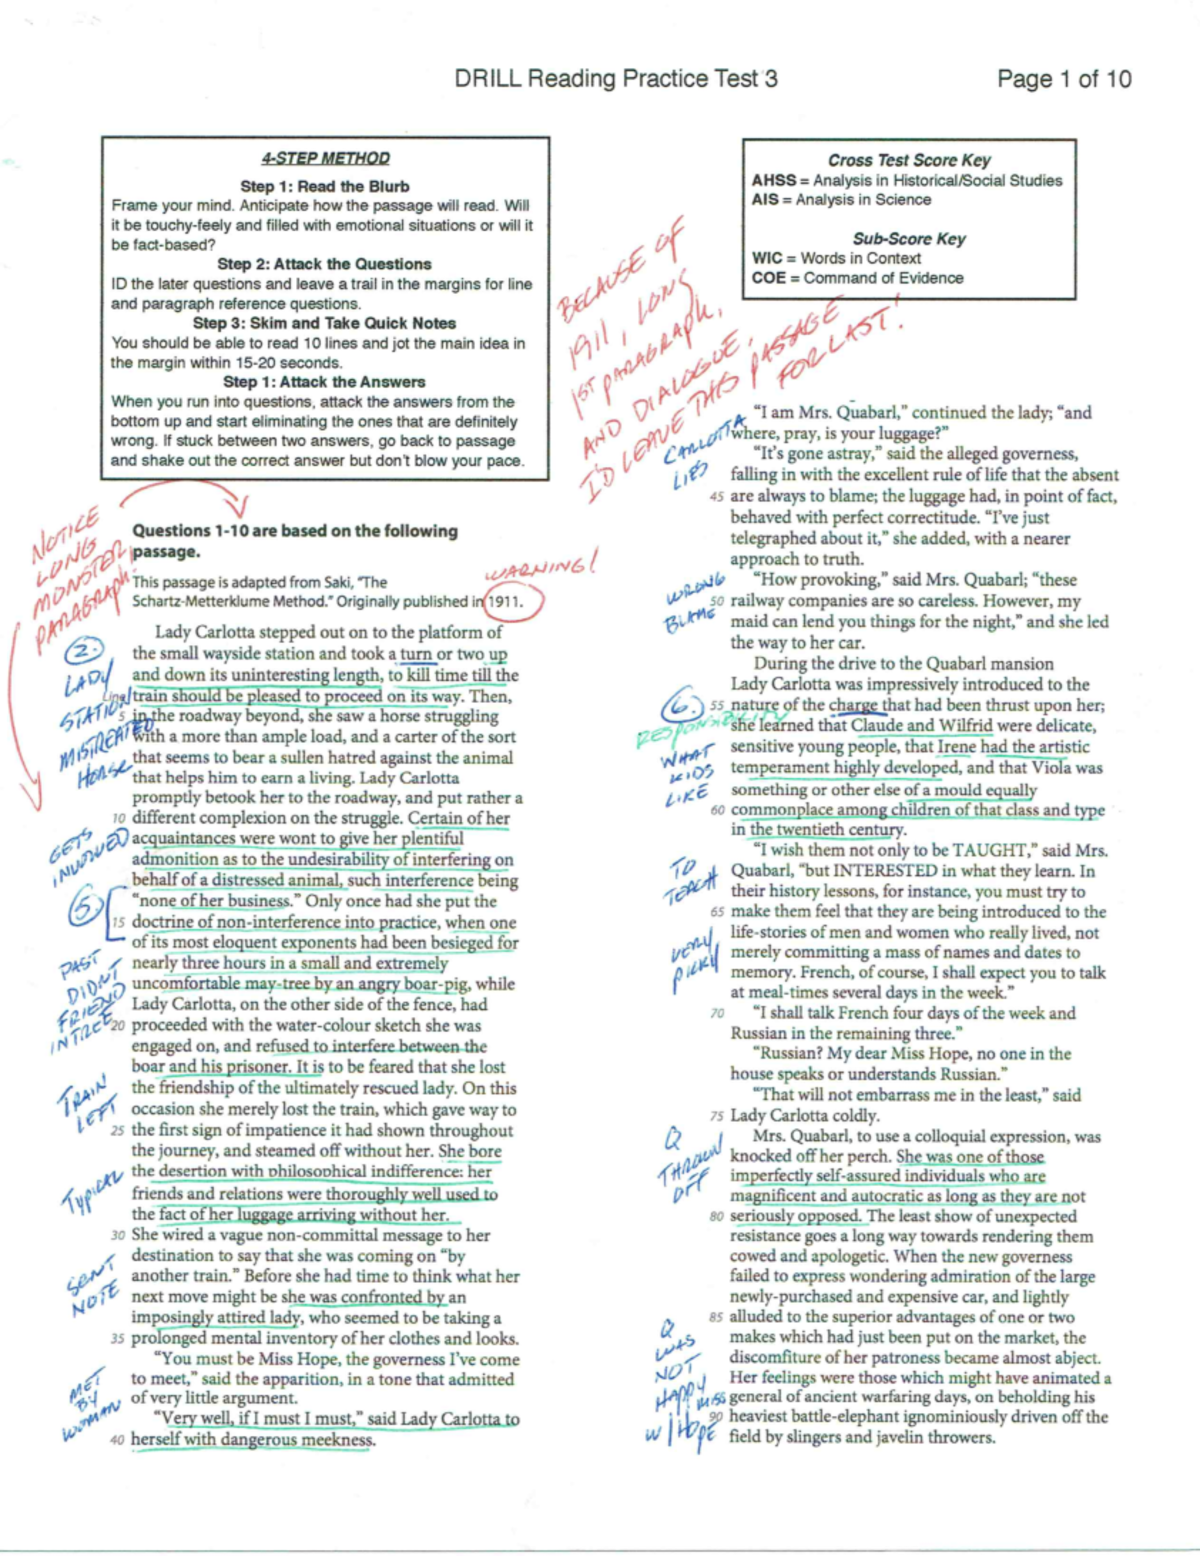 DRILL Reading Practice Test 3
Page 1 of 10
4-STEP METHOD
Step 1: Read the Blurb
Frame your mind. Anticipate how the passage will read. Will
it be touchy-feely and filled with emotional situations or will it
be fact-based?
Step 2: Attack the Questions
ID the later questions and leave a trail in the margins for line
and paragraph reference questions.
Step 3: Skim and Take Quick Notes
You should be able to read 10 lines and jot the main idea in
the margin within 15-20 seconds.
Step 1: Attack the Answers
When you run into questions, attack the answers from the
bottom up and start eliminating the ones that are definitely
wrong. If stuck between two answers, go back to passage
and shake out the correct answer but don't blow your pace.
Cross Test Score Key
AHSS = Analysis in Historical/Social Studies
AIS = Analysis in Science
Sub-Score Key
WIC = Words in Context
COE = Command of Evidence
BECAUSE OF
1911, LONG
1ST PARAGRAPH,
AND DIALOGUE,
I'D LEAVE THIS PASSAGE
FOR LAST!
NOTICE
LONG
MONSTER
PARAGRAPH
Questions 1-10 are based on the following
passage.
WARNING!
This passage is adapted from Saki, "The
Schartz-Metterklume Method." Originally published in 1911.
Lady Carlotta stepped out on to the platform of
the small wayside station and took a turn or two up
and down its uninteresting length, to kill time till the
Line train should be pleased to proceed on its way. Then,
5 in the roadway beyond, she saw a horse struggling
with a more than ample load, and a carter of the sort
that seems to bear a sullen hatred against the animal
that helps him to earn a living. Lady Carlotta
promptly betook her to the roadway, and put rather a
10 different complexion on the struggle. Certain of her
acquaintances were wont to give her plentiful
admonition as to the undesirability of interfering on
behalf of a distressed animal, such interference being
"none of her business." Only once had she put the
15 doctrine of non-interference into practice, when one
of its most eloquent exponents had been besieged for
nearly three hours in a small and extremely
uncomfortable may-tree by an angry boar-pig, while
Lady Carlotta, on the other side of the fence, had
20 proceeded with the water-colour sketch she was
engaged on, and refused to interfere between the
boar and his prisoner. It is to be feared that she lost
the friendship of the ultimately rescued lady. On this
occasion she merely lost the train, which gave way to
25 the first sign of impatience it had shown throughout
the journey, and steamed off without her. She bore
the desertion with philosophical indifference; her
friends and relations were thoroughly well used to
the fact of her luggage arriving without her.
30 She wired a vague non-committal message to her
destination to say that she was coming on "by
another train." Before she had time to think what her
next move might be she was confronted by an
imposingly attired lady, who seemed to be taking a
35 prolonged mental inventory of her clothes and looks.
"You must be Miss Hope, the governess I've come
to meet," said the apparition, in a tone that admitted
of very little argument.
"Very well, if I must I must," said Lady Carlotta to
40 herself with dangerous meekness.
2.
LADY
STATION
MISTREATED
HORSE
GETS
INVOLVED
5
PAST
DIDN'T
FRIEND
IN TREE
TRAIN
LEFT
TYPICAL
SENT
NOTE
MET
BY
WOMAN
"I am Mrs. Quabarl," continued the lady; "and
where, pray, is your luggage?"
"It's gone astray," said the alleged governess,
falling in with the excellent rule of life that the absent
45 are always to blame; the luggage had, in point of fact,
behaved with perfect correctitude. "I've just
telegraphed about it," she added, with a nearer
approach to truth.
"How provoking," said Mrs. Quabarl; "these
50 railway companies are so careless. However, my
maid can lend you things for the night," and she led
the way to her car.
During the drive to the Quabarl mansion
Lady Carlotta was impressively introduced to the
55 nature of the charge that had been thrust upon her;
she learned that Claude and Wilfrid were delicate,
sensitive young people, that Irene had the artistic
temperament highly developed, and that Viola was
something or other else of a mould equally
60 commonplace among children of that class and type
in the twentieth century.
"I wish them not only to be TAUGHT," said Mrs.
Quabarl, "but INTERESTED in what they learn. In
their history lessons, for instance, you must try to
65 make them feel that they are being introduced to the
life-stories of men and women who really lived, not
merely committing a mass of names and dates to
memory. French, of course, I shall expect you to talk
at meal-times several days in the week."
70 "I shall talk French four days of the week and
Russian in the remaining three."
"Russian? My dear Miss Hope, no one in the
house speaks or understands Russian."
"That will not embarrass me in the least," said
75 Lady Carlotta coldly.
Mrs. Quabarl, to use a colloquial expression, was
knocked off her perch. She was one of those
imperfectly self-assured individuals who are
magnificent and autocratic as long as they are not
80 seriously opposed. The least show of unexpected
resistance goes a long way towards rendering them
cowed and apologetic. When the new governess
failed to express wondering admiration of the large
newly-purchased and expensive car, and lightly
85 alluded to the superior advantages of one or two
makes which had just been put on the market, the
discomfiture of her patroness became almost abject.
Her feelings were those which might have animated a
general of ancient warfaring days, on beholding his
90 heaviest battle-elephant ignominiously driven off the
field by slingers and javelin throwers.
CARLOTTA
LIES
WRONG
BLAME
6.
RESPONSIBILITY
WHAT
KIDS
LIKE
TO
TEACH
VERY
PICKY
Q
THROWN
OFF
Q
WAS
NOT
HAPPY
W/ MISS
HOPE